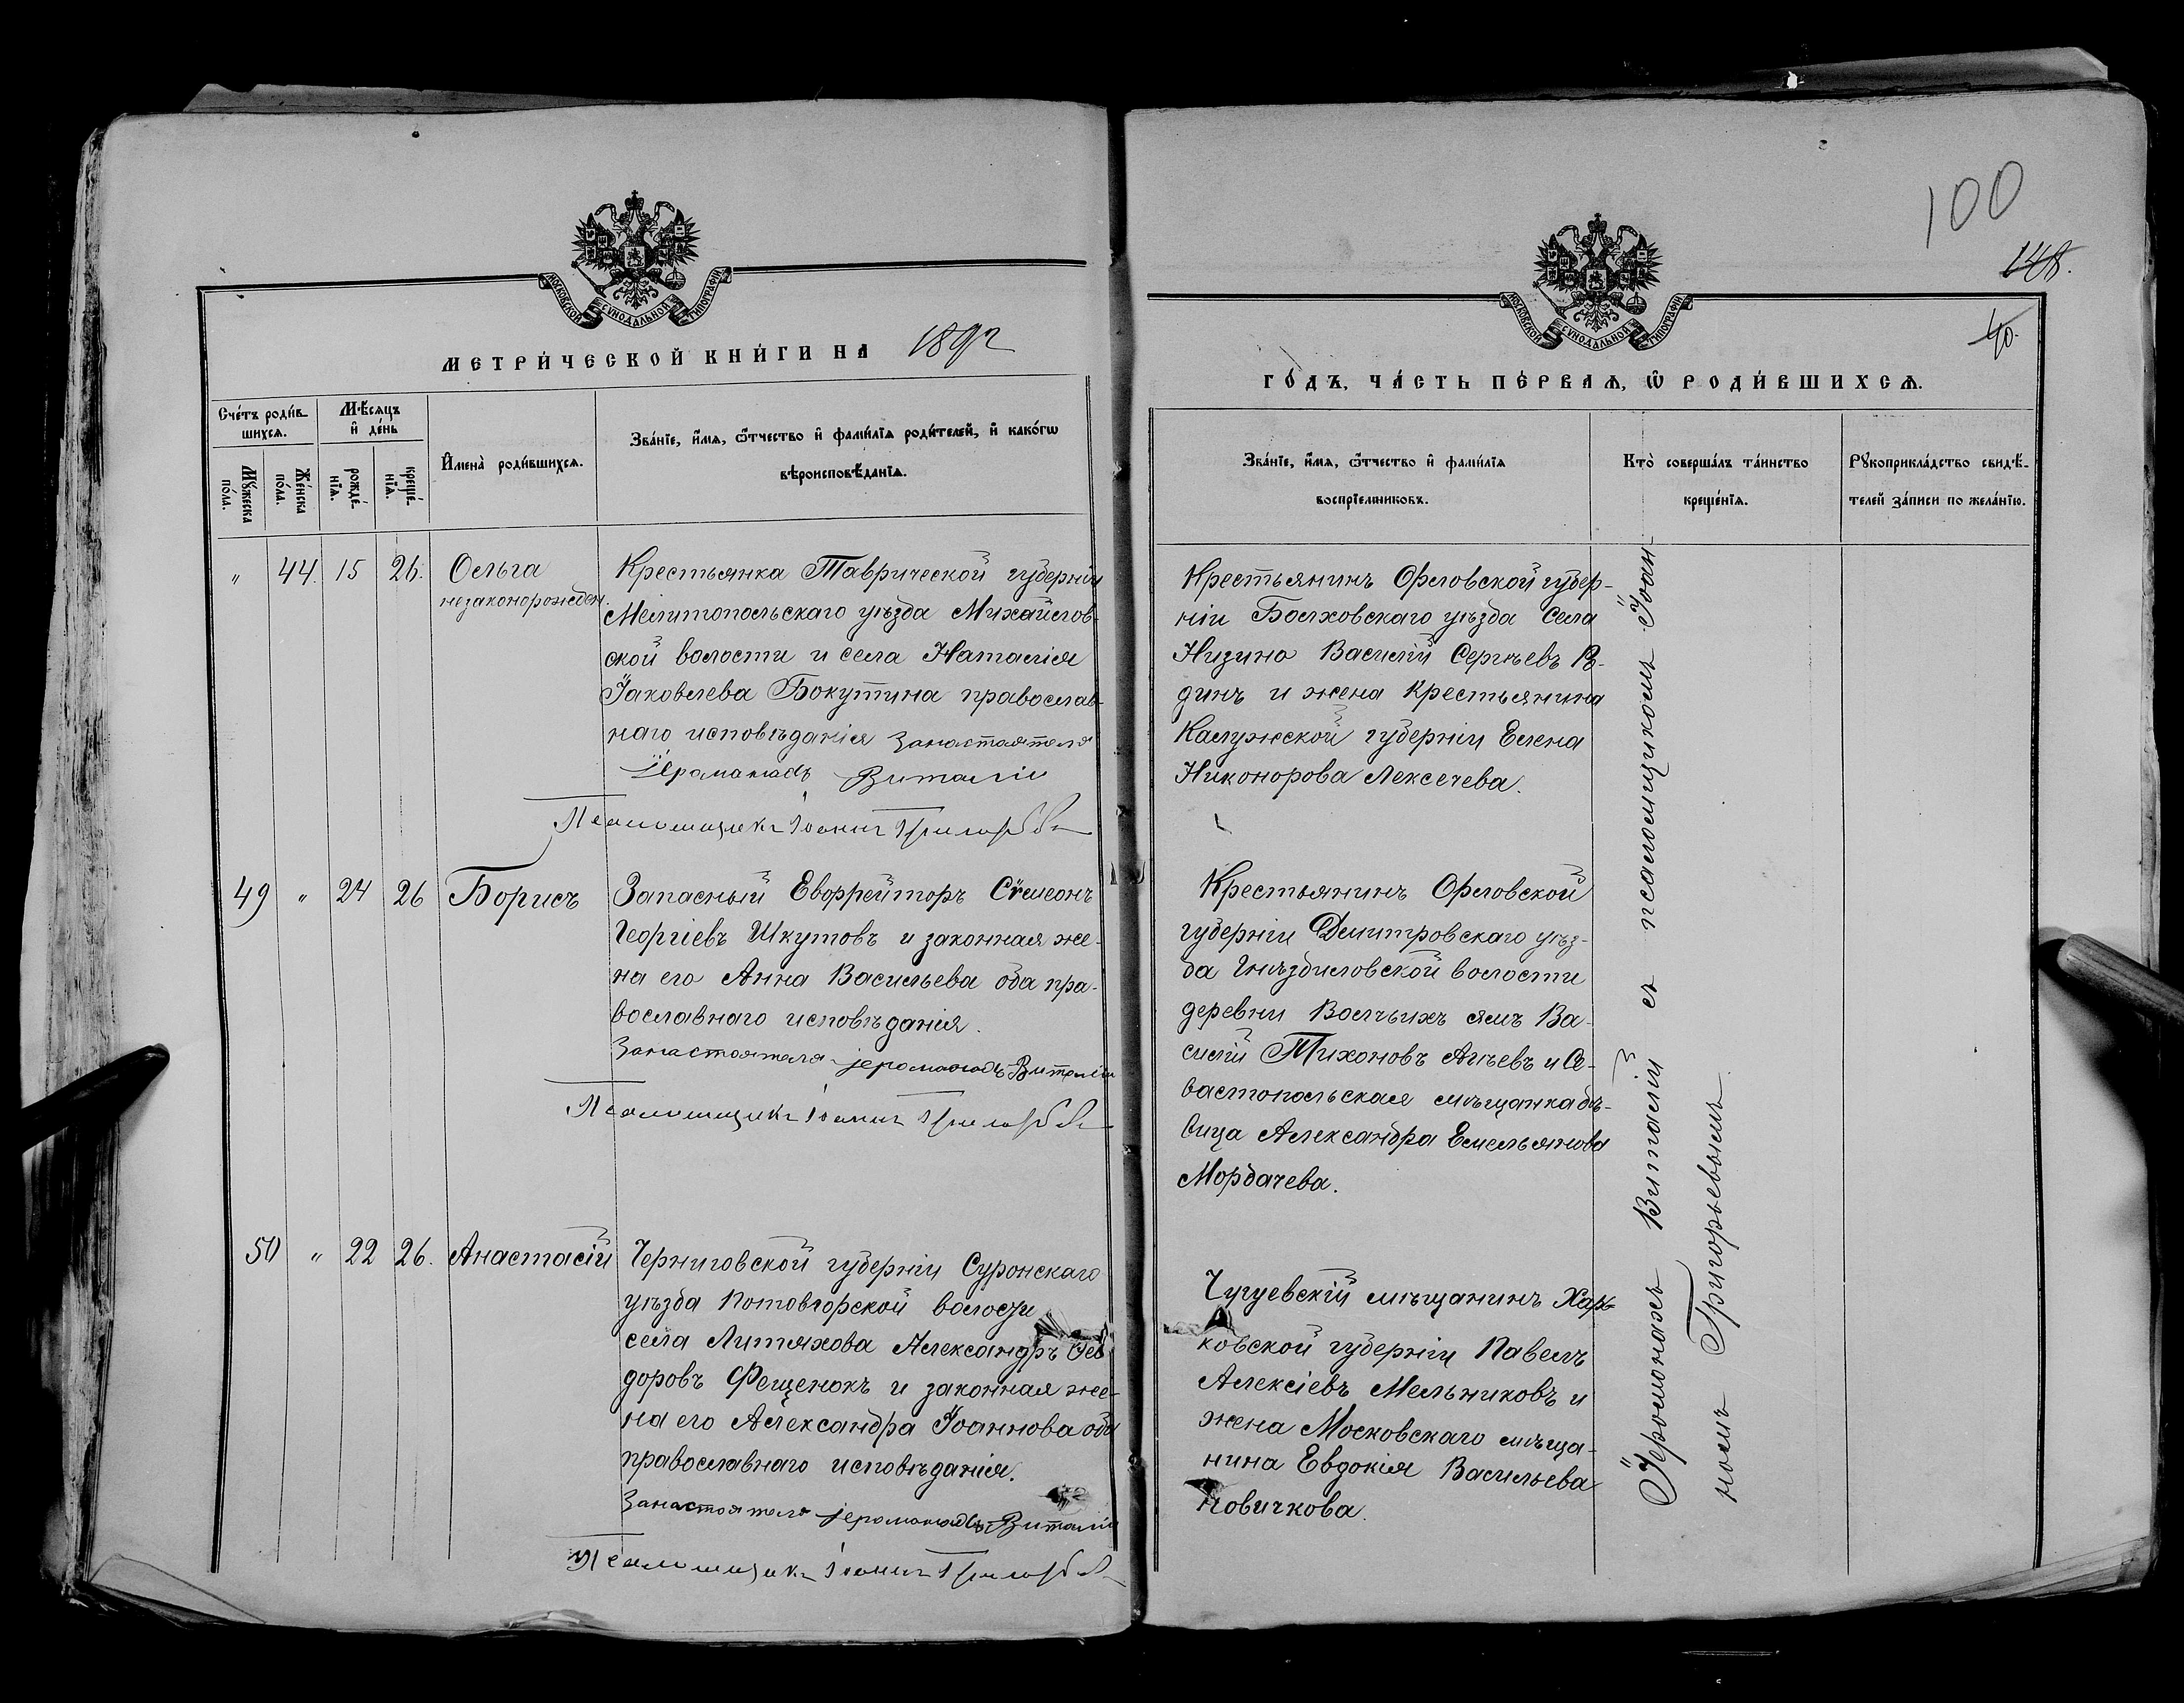 100
148.
40.
МОСКОВСКОЙ СѴНОДАЛЬНОЙ ТИПОГРАФІИ
МЕТРИ́ЧЕСКОЙ КНИ́ГИ НА 1892
Сче́тъ роди́в-
шихсѧ.
Мꙋ́жеска
по́ла.
Же́нска
по́ла.
Мѣ́сѧцъ
и҆ де́нь
рожде́-
нїѧ.
креще́-
нїѧ.
И҆мена̀ роди́вшихсѧ.
Зва́нїе, и҆́мѧ, ѻ҆́тчество и҆ фами́лїѧ роди́телей, и҆ како́гѡ
вѣроисповѣ́данїѧ.
" 44. 15 26. Ольга
незаконорожден.
Крестьянка Таврической губерніи
Мелитопольскаго уѣзда Михайлов-
ской волости и села Наталія
Іаковлева Бокутина православ-
наго исповѣданія За настоятеля
Іеромонахъ Виталій
Псаломщикъ Іоаннъ Григорьевъ
49 " 24 26 Борисъ
Запасный Евфрейторъ Сѵмеонъ
Георгіевъ Шкутовъ и законная же-
на его Анна Васильева оба пра-
вославнаго исповѣданія.
За настоятеля іеромонахъ Виталій
Псаломщикъ Іоаннъ Григорьевъ
50 " 22 26. Анастасій
Черниговской губерніи Суронскаго
уѣзда Потовгорской волости
села Литяхова Александръ Фео
доровъ Фещенокъ и законная же-
на его Александра Іоаннова оба
православнаго исповѣданія.
За настоятеля іеромонахъ Виталій
Псаломщикъ Іоаннъ Григорьевъ
МОСКОВСКОЙ СѴНОДАЛЬНОЙ ТИПОГРАФІИ
ГО́ДЪ, ЧА́СТЬ ПЕ́РВАѦ, Ѡ҆ РОДИ́ВШИХСѦ.
Зва́нїе, и҆́мѧ, ѻ҆́тчество и҆ фами́лїѧ
воспрїемниковъ.
Кто̀ соверша́лъ та́инство
креще́нїѧ.
Рꙋкоприкла́дство свидѣ́-
телей за́писи по жела́нїю.
Крестьянинъ Орловской губер-
ніи Болховскаго уѣзда Села
Низино Василій Сергѣевъ Ю-
динъ и жена крестьянина
Калужской губерніи Елена
Никонорова Лексечева.
Крестьянинъ Орловской
губерніи Дмитровскаго уѣз-
да Гнѣздиловской волости
деревни Волчьихъ ямъ Ва-
силій Тихоновъ Агѣевъ и Се-
вастопольская мѣщанка дѣ-
вица Александра Емельянова
Мордачева.
Чугуевскій мѣщанинъ Харь-
ковской губерніи Павелъ
Алексіевъ Мельниковъ и
жена Московскаго мѣща-
нина Евдокія Васильева
Новичкова.
Іеромонахъ Виталій съ псаломщикомъ Іоан-
номъ Григорьевымъ